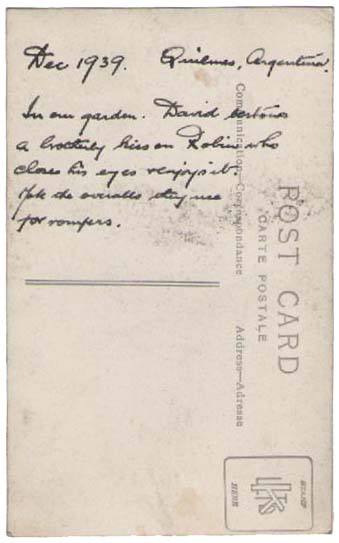 Dec 1939. Quilmes, Argentina.
In our garden. David bestows
a brotherly kiss on Robin who
closes his eyes & enjoys it.
overalls they use
for rompers.
POST CARD
CARTE POSTALE
Communication—Correspondance
Address—Adresse
STAMP
HERE